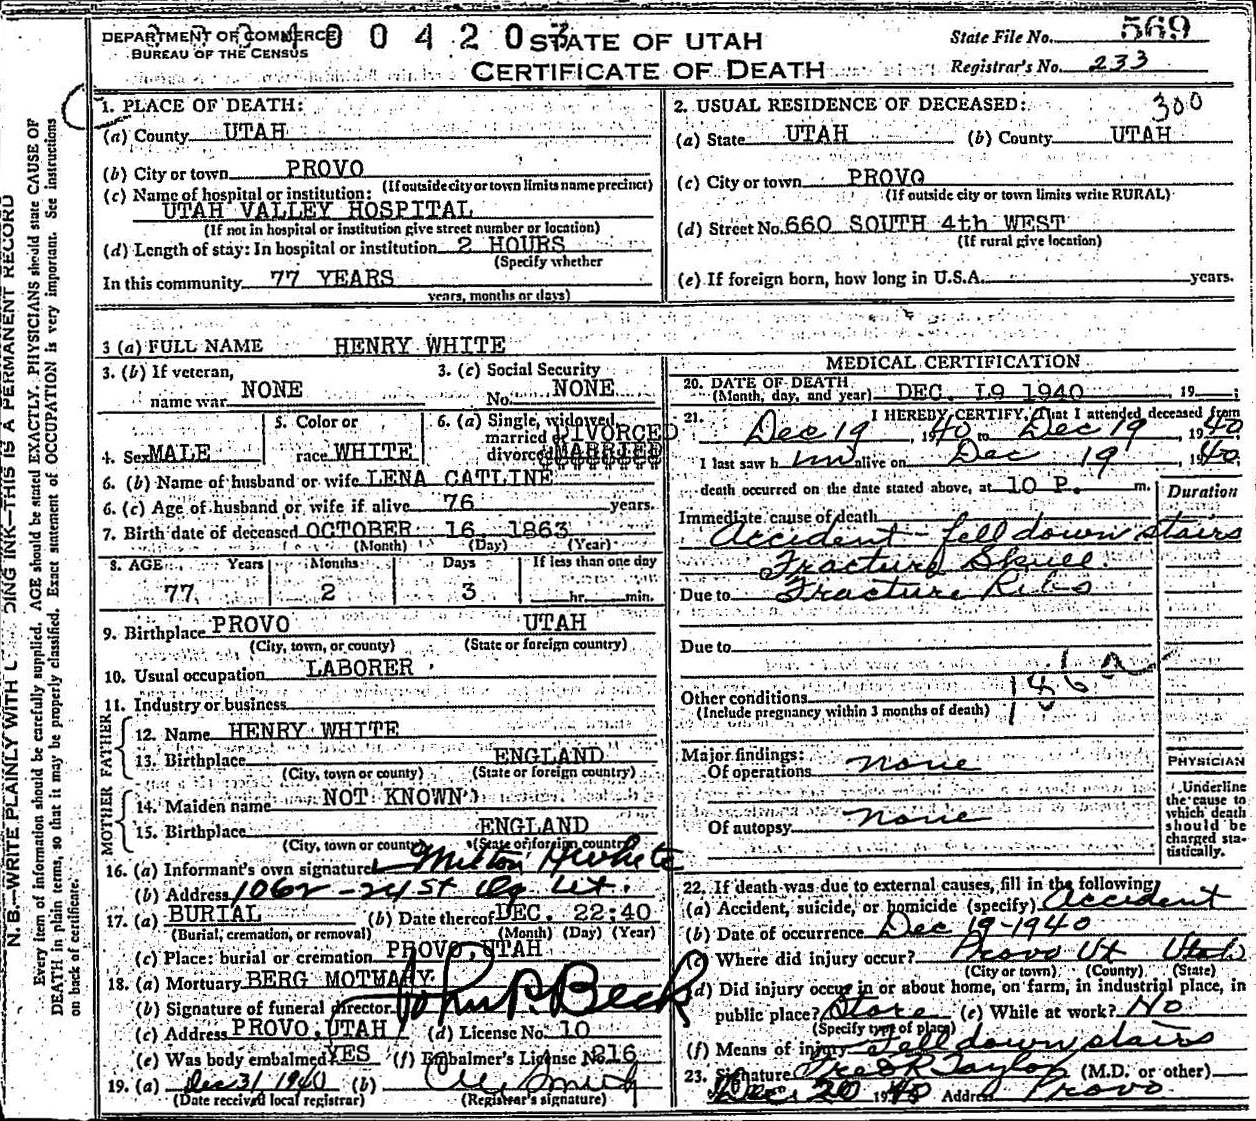 DEPARTMENT OF COMMERCE
BUREAU OF THE CENSUS
0 0 4 2 0
STATE OF UTAH
CERTIFICATE OF DEATH
State File No. 569
Registrar's No. 233
1. PLACE OF DEATH:
(a) County UTAH
(b) City or town PROVO
(If outside city or town limits name precinct)
(c) Name of hospital or institution:
UTAH VALLEY HOSPITAL
(If not in hospital or institution give street number or location)
(d) Length of stay: In hospital or institution 2 HOURS
(Specify whether
In this community 77 YEARS
years, months or days)
2. USUAL RESIDENCE OF DECEASED: 300
(a) State UTAH (b) County UTAH
(c) City or town PROVO
(If outside city or town limits write RURAL)
(d) Street No. 660 SOUTH 4th WEST
(If rural give location)
(e) If foreign born, how long in U.S.A. years.
3 (a) FULL NAME HENRY WHITE
3. (b) If veteran, name war NONE
3. (c) Social Security No. NONE
4. Sex MALE
5. Color or race WHITE
6. (a) Single, widowed married or divorced DIVORCED MARRIED
6. (b) Name of husband or wife LENA CATLINE
6. (c) Age of husband or wife if alive 76 years.
7. Birth date of deceased OCTOBER 16 1863
(Month) (Day) (Year)
8. AGE Years Months Days If less than one day
77 2 3 hr. min.
9. Birthplace PROVO UTAH
(City, town, or county) (State or foreign country)
10. Usual occupation LABORER
11. Industry or business
FATHER
12. Name HENRY WHITE
13. Birthplace ENGLAND
(City, town or county) (State or foreign country)
MOTHER
14. Maiden name NOT KNOWN
15. Birthplace ENGLAND
(City, town or county) (State or foreign country)
16. (a) Informant's own signature Milton H White
(b) Address 1062 - 24 St Og Ut.
17. (a) BURIAL (b) Date thereof DEC. 22:40
(Burial, cremation, or removal) (Month) (Day) (Year)
(c) Place: burial or cremation PROVO, UTAH
18. (a) Mortuary BERG MOTMARY
(b) Signature of funeral director John P. Beck
(c) Address PROVO, UTAH (d) License No. 10
(e) Was body embalmed YES (f) Embalmer's License No. 216
19. (a) Dec 31 1940 (b)
(Date received local registrar) (Registrar's signature)
MEDICAL CERTIFICATION
20. DATE OF DEATH
(Month, day, and year) DEC. 19 1940 19 ;
21. I HEREBY CERTIFY, that I attended deceased from
Dec 19, 1940 to Dec 19, 1940
I last saw him alive on Dec 19, 1940
death occurred on the date stated above, at 10 P. m.
Duration
Immediate cause of death
Accident - fell down stairs
Fracture Skull.
Due to Fracture Ribs
Due to
186a
Other conditions
(Include pregnancy within 3 months of death)
Major findings:
Of operations none
Of autopsy none
PHYSICIAN
Underline
the cause to
which death
should be
charged sta-
tistically.
22. If death was due to external causes, fill in the following
(a) Accident, suicide, or homicide (specify) Accident
(b) Date of occurrence Dec 19-1940
(c) Where did injury occur? Provo Ut Utah
(City or town) (County) (State)
(d) Did injury occur in or about home, on farm, in industrial place, in
public place? Store (e) While at work? No
(Specify type of place)
(f) Means of injury Fell down stairs
23. Signature Fred R Taylor (M.D. or other)
Dec. 20 1940 Address Provo
N. B.—WRITE PLAINLY WITH DING INK—THIS IS A PERMANENT RECORD
Every item of information should be carefully supplied. AGE should be stated EXACTLY. PHYSICIANS should state CAUSE OF
DEATH in plain terms, so that it may be properly classified. Exact statement of OCCUPATION is very important. See instructions
on back of certificate.